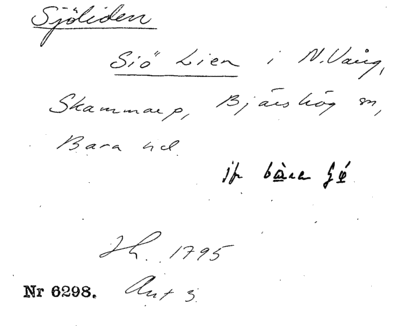 Sjöliden
Siö Lien i N. Vång,
Skammarp, Bjärshög sn,
Bara hd.
jfr
1795
Nr 6298. Akt 3